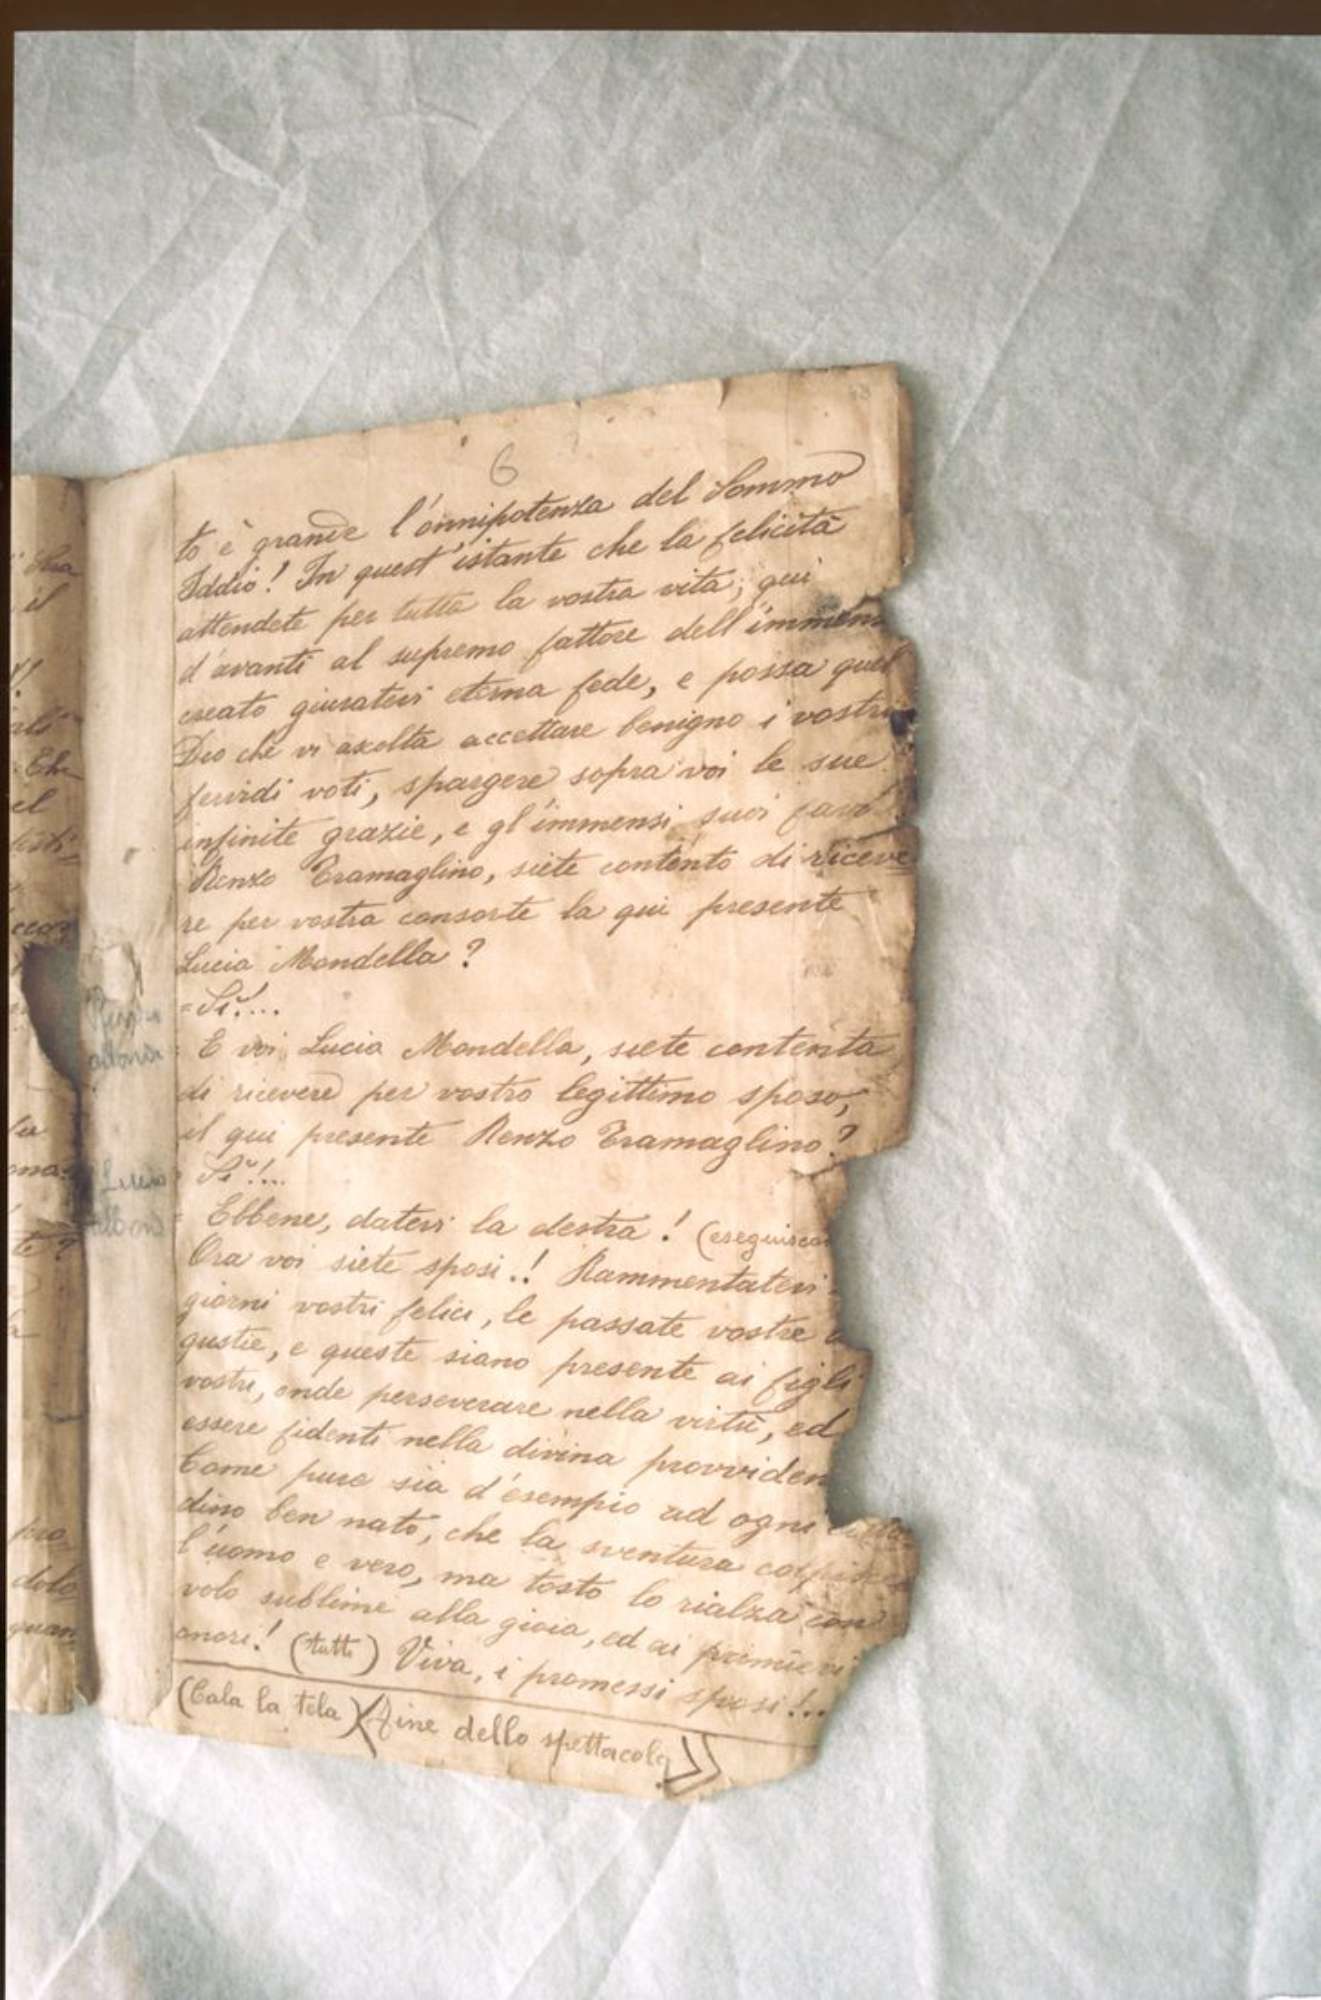 6
to è grande l'onnipotenza del Sommo
Iddio! In quest'istante che la felicità
attendete per tutta la vostra vita; qui
d'avanti al supremo fattore dell'immen
creato giuratevi eterna fede, e possa quel
Dio che vi ascolta accettare benigno i vostri
fervidi voti, spargere sopra voi le sue
infinite grazie, e gl'immensi suoi favo
Renzo Tramaglino, siete contento di riceve
re per vostra consorte la qui presente
Lucia Mondella?
= Si!...
= E voi, Lucia Mondella, siete contenta
di ricevere per vostro legittimo sposo,
il qui presente Renzo Tramaglino?
= Si!...
= Ebbene, datevi la destra! (eseguiscon
Ora voi siete sposi..! Rammentatevi
giorni vostri felici, le passate vostre
gustie, e queste siano presente ai figli
vostri, onde perseverare nella virtù, ed
essere fidenti nella divina provviden
Come pure sia d'esempio ad ogni
dino ben nato, che la sventura colpisce
l'uomo e vero, ma tosto lo rialza con
volo sublime alla gioia, ed ai primievi
onori! (tutti) Viva, i promessi sposi!...
(Cala la tela) Fine dello spettacolo